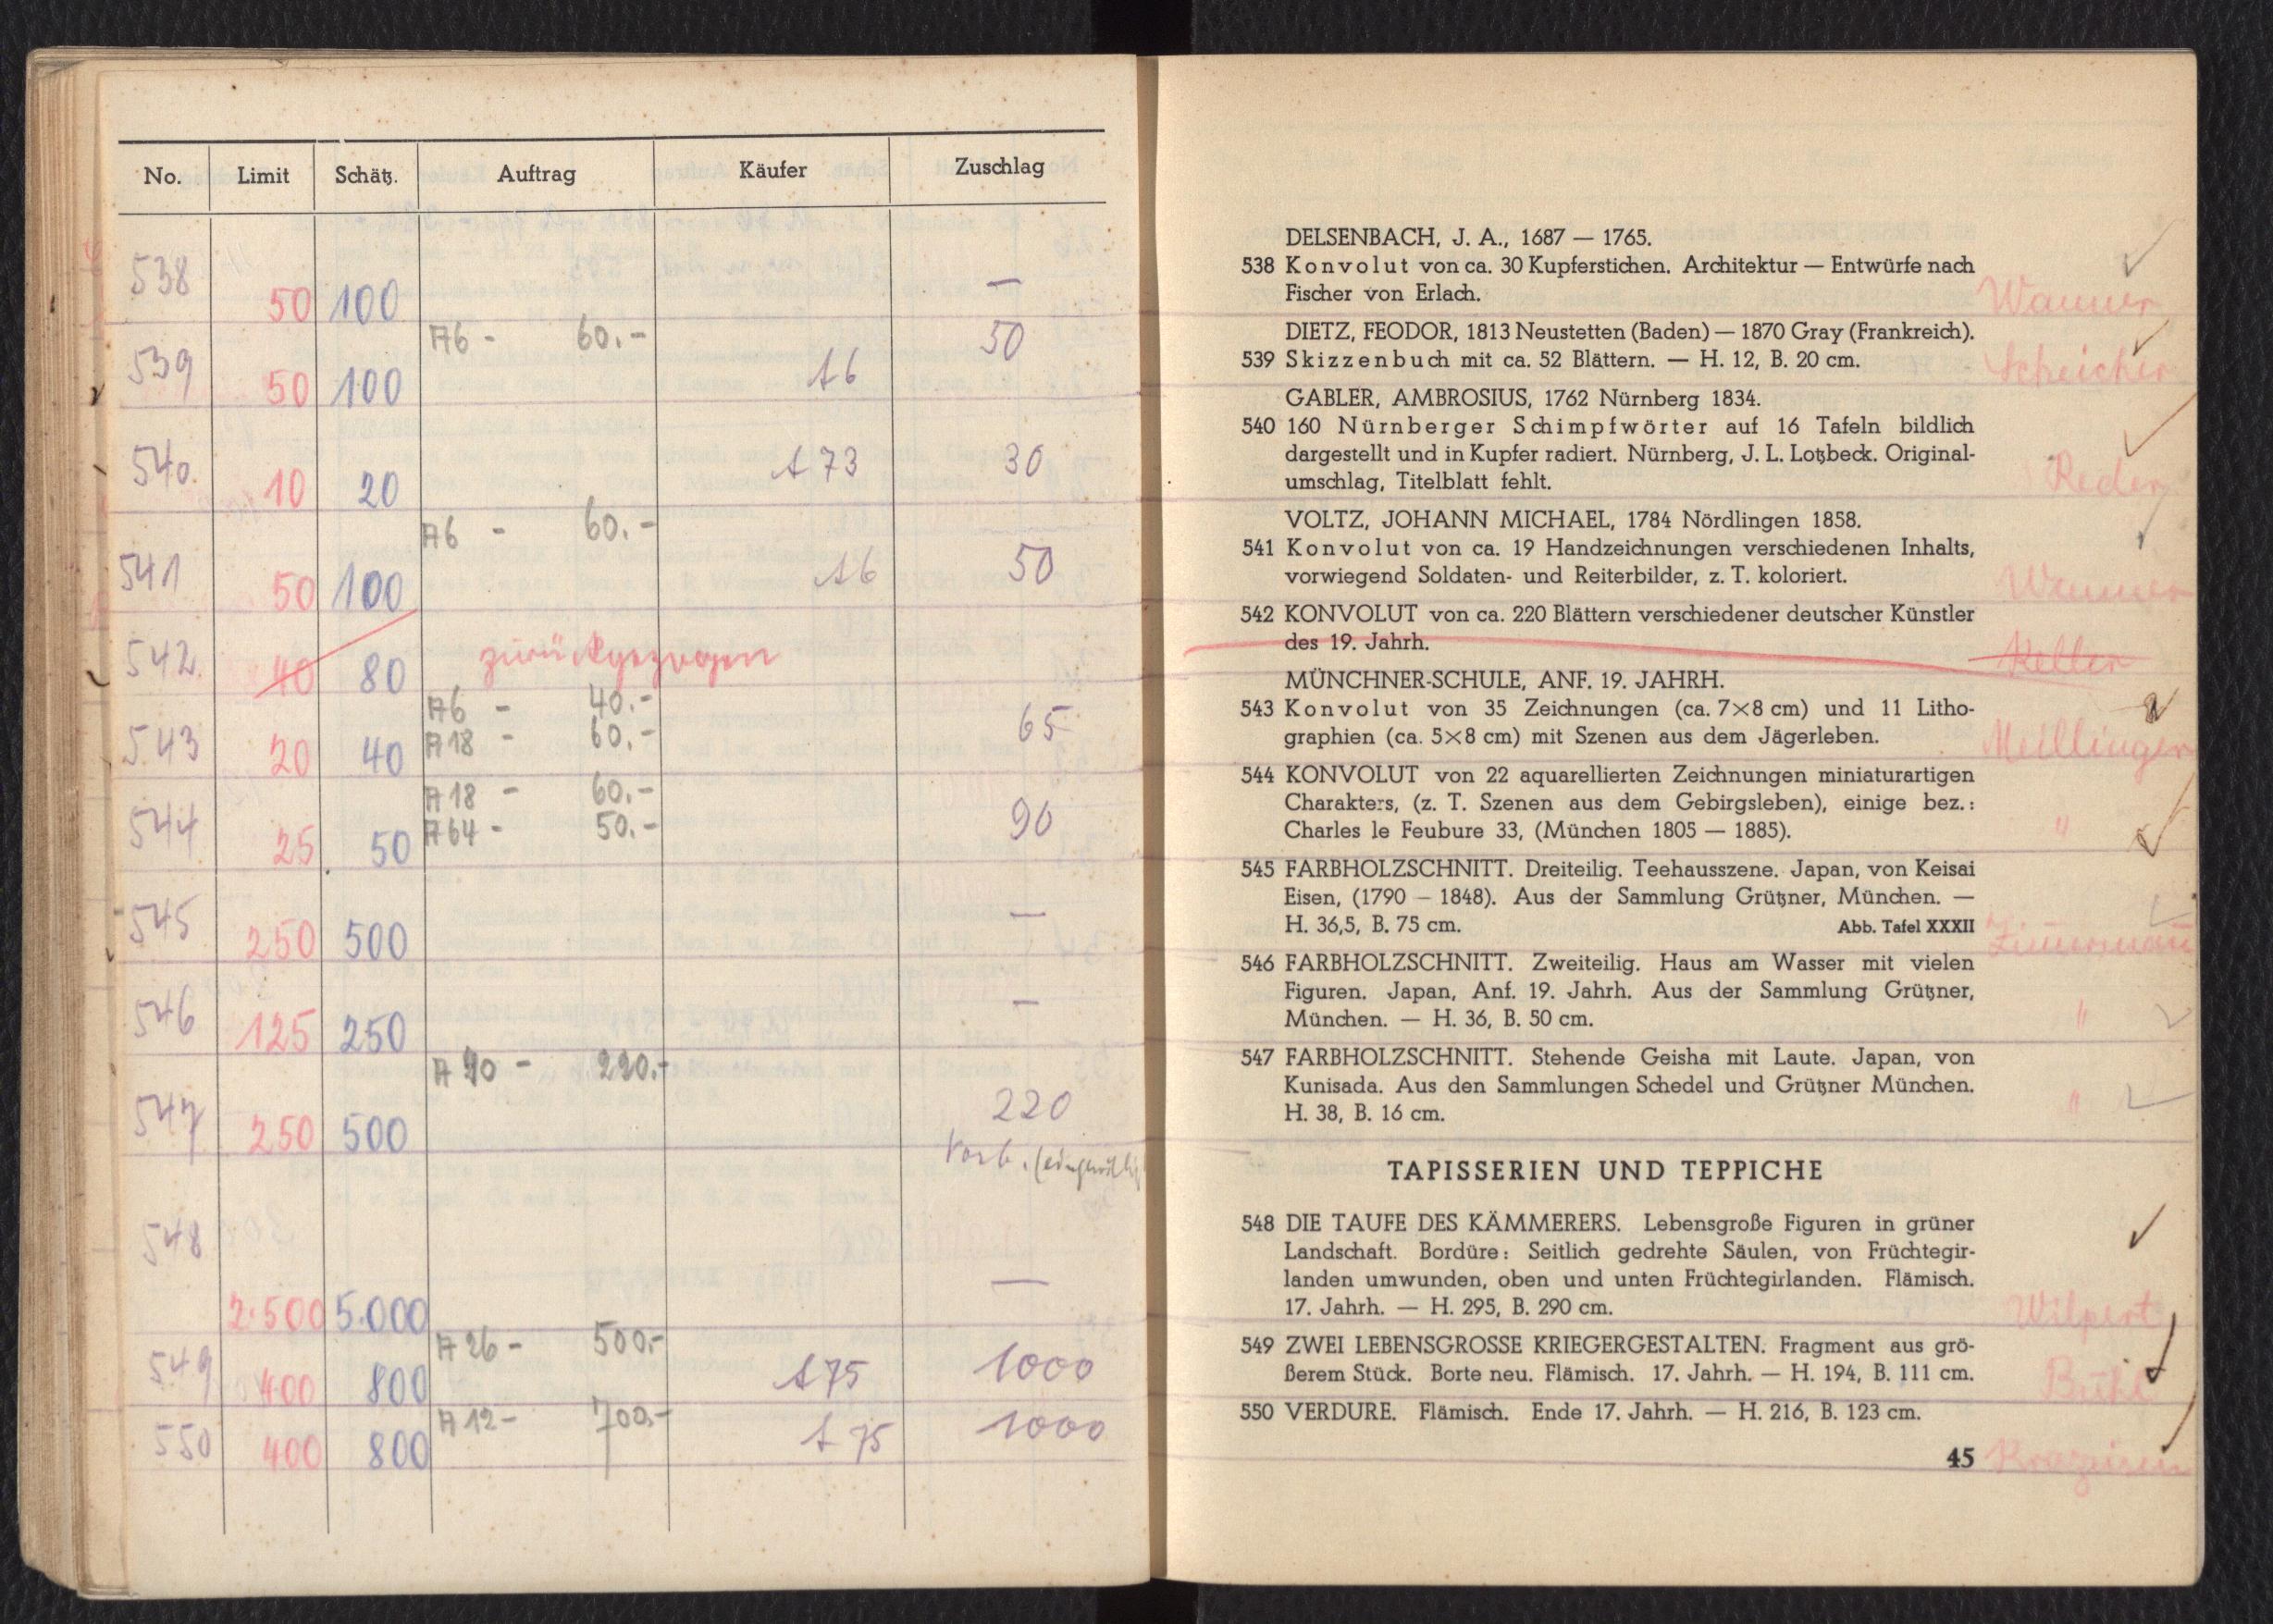 No. Limit Schätz. Auftrag Käufer Zuschlag
538 50 100 —
539 50 100 A6 - 60.- A6 50
540. 10 20 A73 30
541 50 100 A6 - 60.- A6 50
542. 40 80 zurückgezogen
543 20 40 A6 - 40.- 65
A18 - 60.-
544 25 50 A18 - 60.- 90
A64 - 50.-
545 250 500 —
546 125 250 —
547 250 500 A 20 - 220.- 220
Vorb.
548 2.500 5.000 —
549 400 800 A 26 - 500.- A75 1000
550 400 800 A 12 - 700.- A 75 1000
DELSENBACH, J. A., 1687 — 1765.
538 Konvolut von ca. 30 Kupferstichen. Architektur — Entwürfe nach
Fischer von Erlach.
Wanner
DIETZ, FEODOR, 1813 Neustetten (Baden) — 1870 Gray (Frankreich).
539 Skizzenbuch mit ca. 52 Blättern. — H. 12, B. 20 cm.
Scheicher
GABLER, AMBROSIUS, 1762 Nürnberg 1834.
540 160 Nürnberger Schimpfwörter auf 16 Tafeln bildlich
dargestellt und in Kupfer radiert. Nürnberg, J. L. Lotzbeck. Original-
umschlag, Titelblatt fehlt.
Reder
VOLTZ, JOHANN MICHAEL, 1784 Nördlingen 1858.
541 Konvolut von ca. 19 Handzeichnungen verschiedenen Inhalts,
vorwiegend Soldaten- und Reiterbilder, z. T. koloriert.
Wanner
542 KONVOLUT von ca. 220 Blättern verschiedener deutscher Künstler
des 19. Jahrh.
Keller
MÜNCHNER-SCHULE, ANF. 19. JAHRH.
543 Konvolut von 35 Zeichnungen (ca. 7×8 cm) und 11 Litho-
graphien (ca. 5×8 cm) mit Szenen aus dem Jägerleben.
Meillinger
544 KONVOLUT von 22 aquarellierten Zeichnungen miniaturartigen
Charakters, (z. T. Szenen aus dem Gebirgsleben), einige bez.:
Charles le Feubure 33, (München 1805 — 1885).
"
545 FARBHOLZSCHNITT. Dreiteilig. Teehausszene. Japan, von Keisai
Eisen, (1790 – 1848). Aus der Sammlung Grützner, München. —
H. 36,5, B. 75 cm. Abb. Tafel XXXII
Zimmermann
546 FARBHOLZSCHNITT. Zweiteilig. Haus am Wasser mit vielen
Figuren. Japan, Anf. 19. Jahrh. Aus der Sammlung Grützner,
München. — H. 36, B. 50 cm.
"
547 FARBHOLZSCHNITT. Stehende Geisha mit Laute. Japan, von
Kunisada. Aus den Sammlungen Schedel und Grützner München.
H. 38, B. 16 cm.
"
TAPISSERIEN UND TEPPICHE
548 DIE TAUFE DES KÄMMERERS. Lebensgroße Figuren in grüner
Landschaft. Bordüre: Seitlich gedrehte Säulen, von Früchtegir-
landen umwunden, oben und unten Früchtegirlanden. Flämisch.
17. Jahrh. — H. 295, B. 290 cm.
Wilpert
549 ZWEI LEBENSGROSSE KRIEGERGESTALTEN. Fragment aus grö-
ßerem Stück. Borte neu. Flämisch. 17. Jahrh. — H. 194, B. 111 cm.
Bühl
550 VERDURE. Flämisch. Ende 17. Jahrh. — H. 216, B. 123 cm.
45